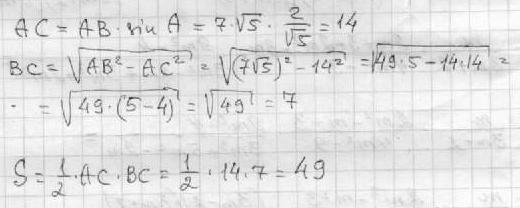 AC = AB · sin A = 7·√5 · 2/√5 = 14
BC = √(AB² − AC²) = √((7√5)² − 14²) = √(49·5 − 14·14) =
· = √(49·(5−4)) = √49 = 7
S = 1/2 · AC · BC = 1/2 · 14 · 7 = 49